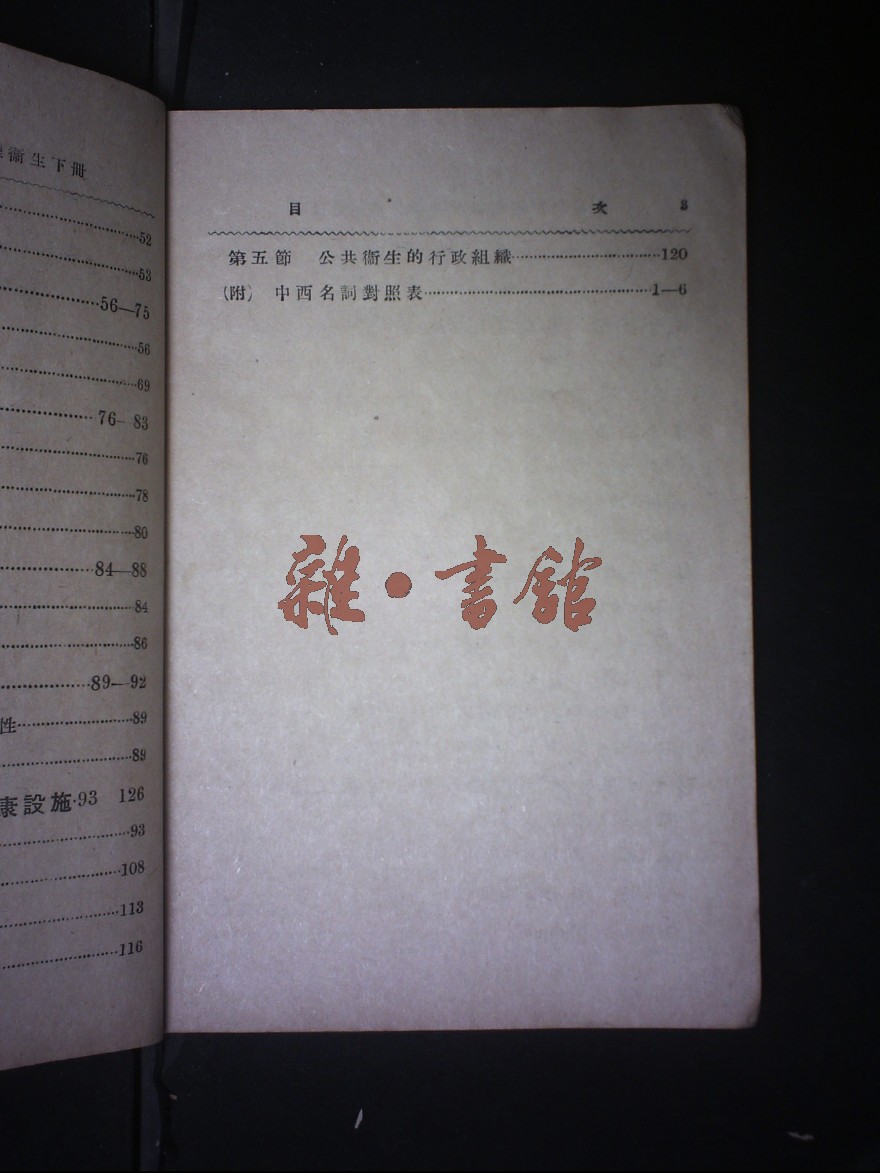 衞生下册
52
53
56—75
56
69
76—83
76
78
80
84—88
84
86
89—92
性 89
89
康設施·93 126
93
108
113
116
目 次 3
第五節 公共衞生的行政組織 120
(附) 中西名詞對照表 1—6
雜·書館